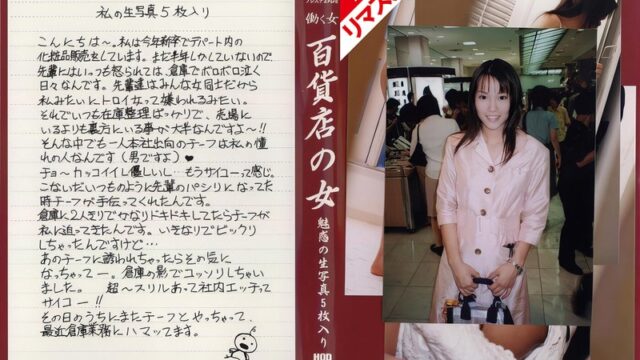 私の生写真5枚入り
こんにちは〜。私は今年新卒でデパート内の
化粧品販売をしてします。まだ半年しかしていないので
先輩にはいっつも怒られては、倉庫でボロボロ泣く
日々なんです。先輩達はみんな女同士だから
私みたいにトロイ女って嫌われるみたい。
それでいつも在庫整理ばっかりで、売場に
いるよりも裏方にいる事が大半なんですよ〜!!
そんな中でも一人本社出向のチーフは私の憧
れの人なんです(男ですよ)♥
チョ〜カッコイイし優しいし…もうサイコーって感じ。
こないだいつものように先輩のパシリになってた
時チーフが手伝ってくれたんです。
倉庫に2人きりでかなりドキドキしてたらチーフが
私に迫ってきたんです。いきなりでビックリ
しちゃったんですけど…
あのチーフに誘われちゃったらその気に
なっちゃってー。倉庫の影でコッソリしちゃい
ました。 超〜スリルあって社内エッチって
サイコー!!
その日のうちにまたチーフとやっちゃって、
最近倉庫業務にハマッてます。
働く女
百貨店の女
魅惑の生写真5枚入り
HOD
リマス